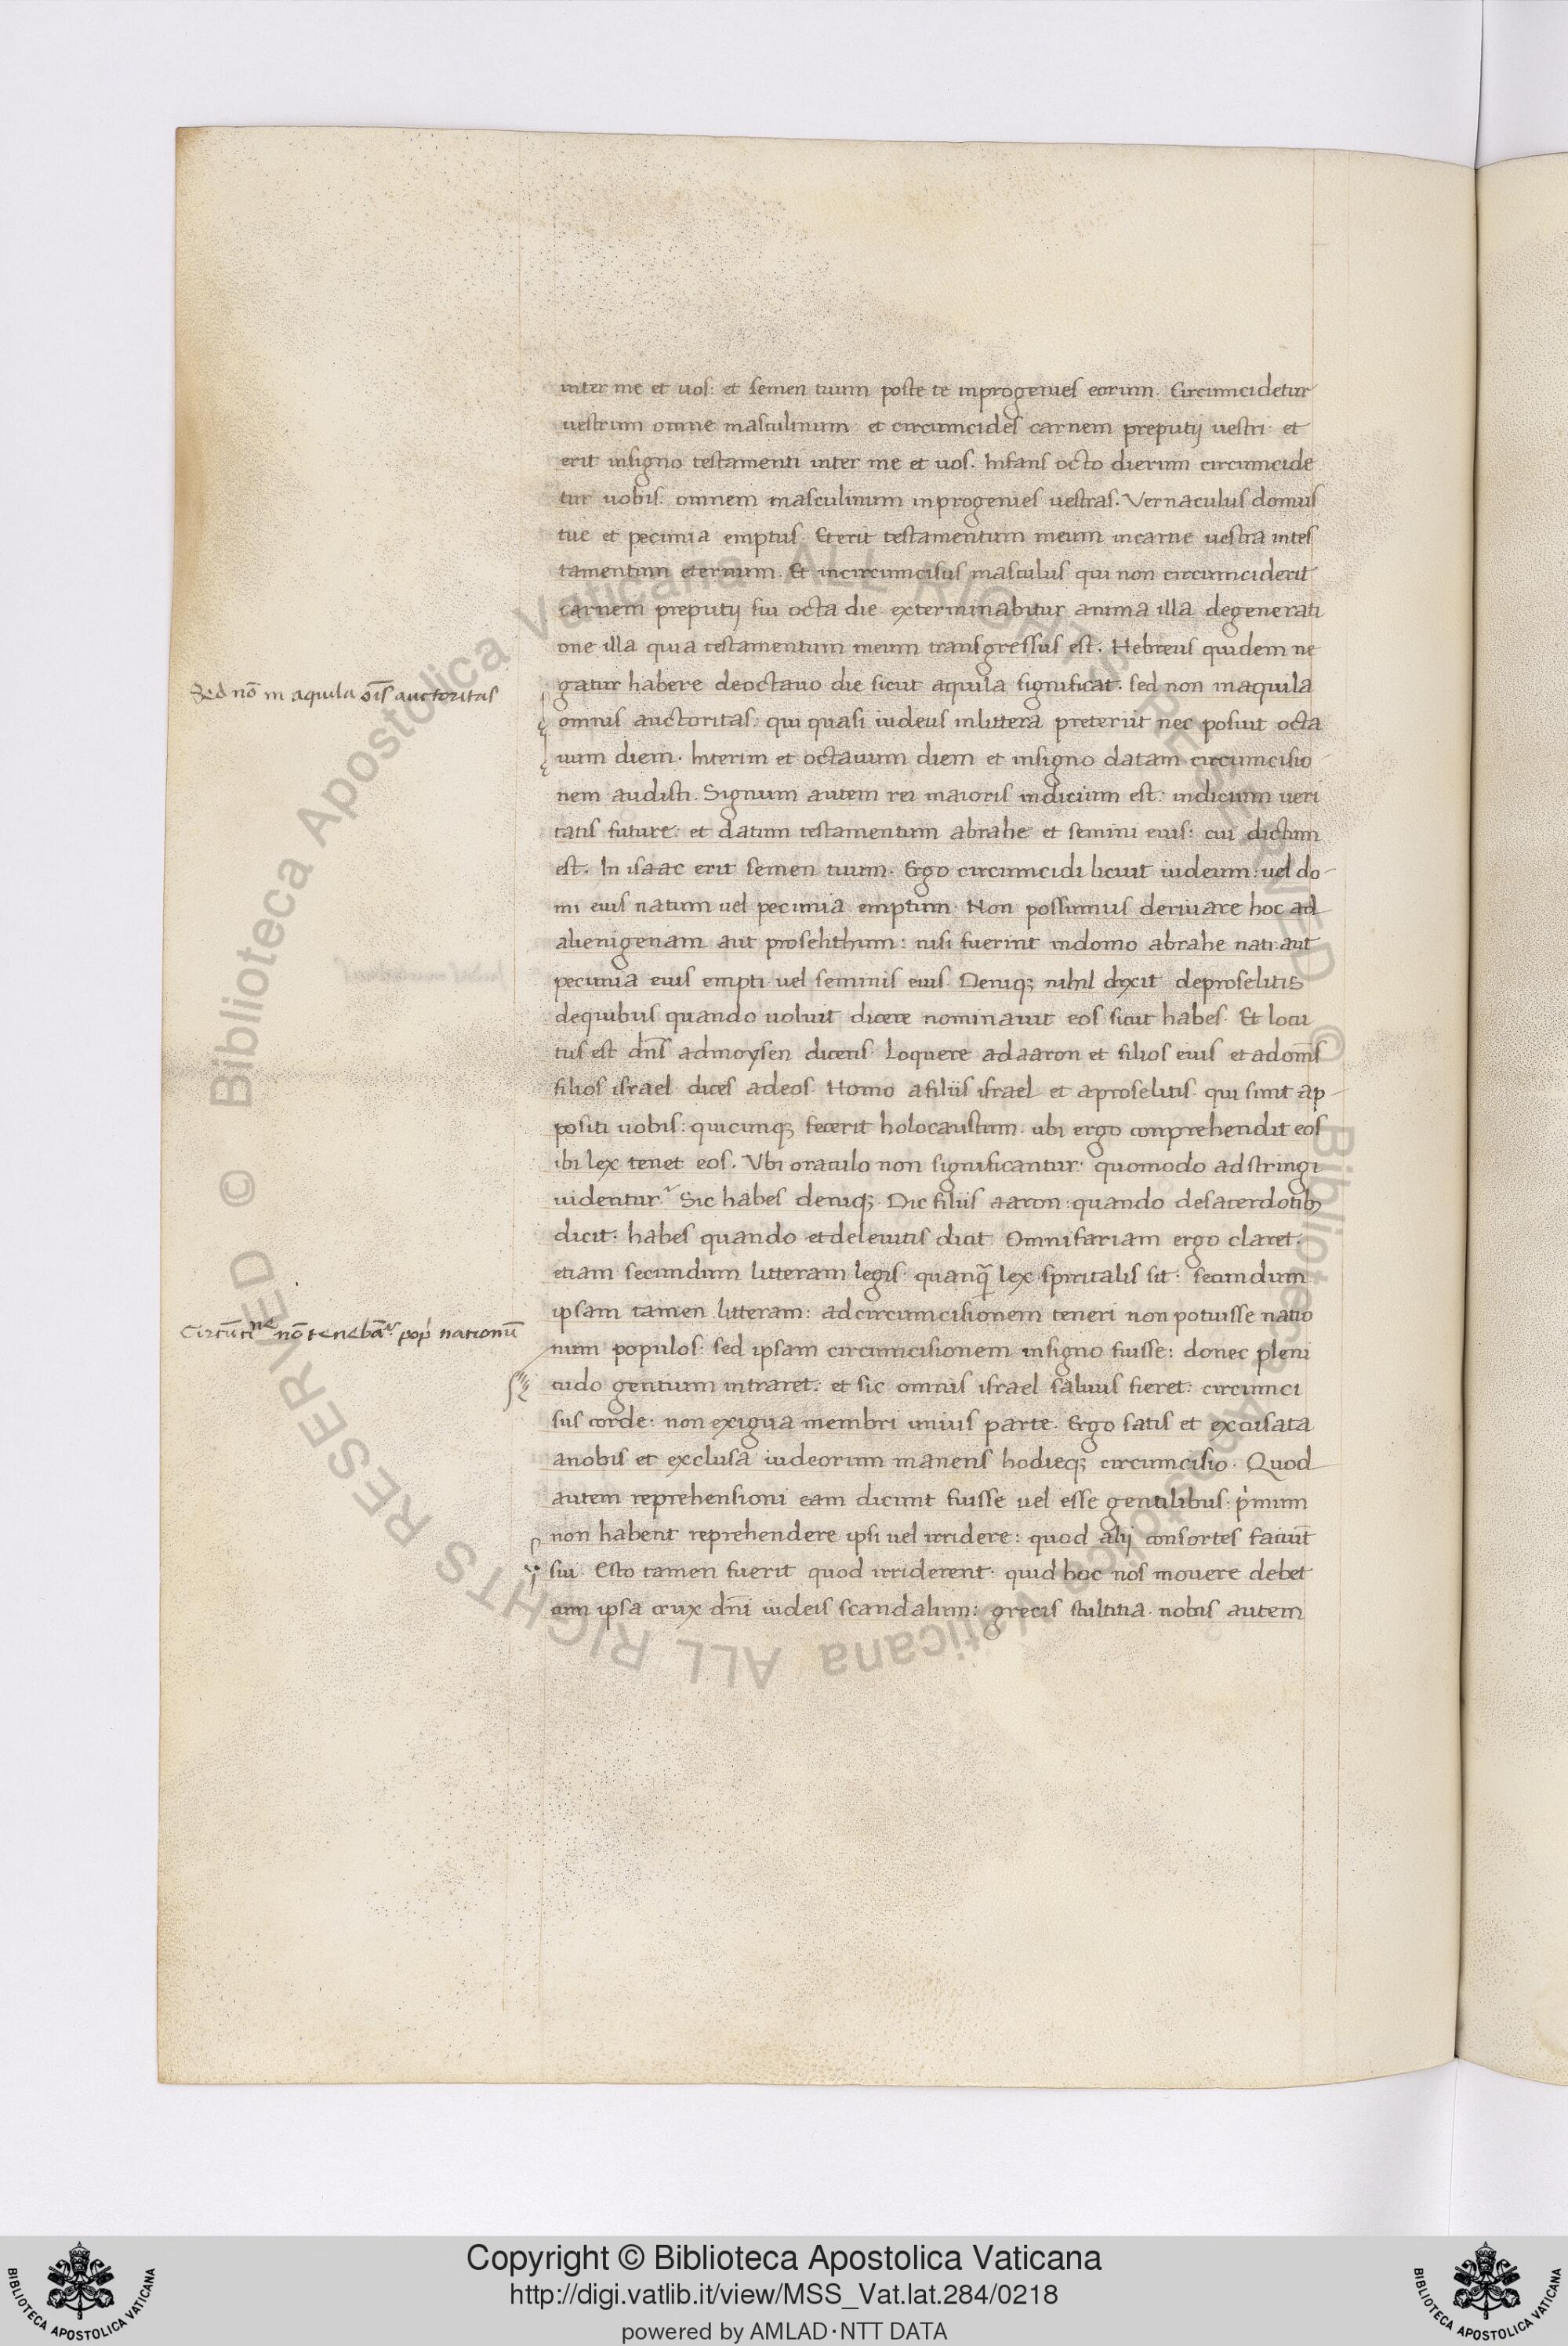 inter me et uos: et semen tuum poste te inprogenies eorum. Circumcidetur
uestrum omne masculinum: et circumcides carnem preputij uestri: et
erit insigno testamenti inter me et uos. Infans octo dierum circumcide
tur uobis: omnem masculinum inprogenies uestras. Vernaculus domus
tue et pecunia emptus. Et erit testamentum meum incarne uestra intes
tamentum eternum. Et incircumcisus masculus qui non circumciderit
carnem preputij sui octa die exterminabitur anima illa degenerati
one illa quia testamentum meum transgressus est. Hebreus quidem ne
gatur habere deoctauo die sicut aquila significat. sed non inaquila
Sed nō in aquila oīs auctoritas
omnis auctoritas: qui quasi iudeus inlittera preteriit nec posuit octa
uum diem. Interim et octauum diem et insigno datam circumcisio
nem audisti. Signum autem rei maioris indicium est: indicium ueri
tatis future: et datum testamentum abrahe et semini eius: cui dictum
est. In isaac erit semen tuum. Ergo circumcidi licuit iudeum: uel do-
mi eius natum uel pecunia emptum. Non possumus deriuare hoc ad
alienigenam aut proselithum: nisi fuerint indomo abrahe nati: aut
pecunia eius empti uel seminis eius. Deniq; nihil dixit deproselitis
dequibus quando uoluit dicere nominauit eos sicut habes. Et locu
tus est dn̄s admoysen dicens. Loquere adaaron et filios eius et adom̄s
filios israel dices adeos. Homo afiliis israel et aproselitis. qui sunt ap-
positi uobis: quicunq; fecerit holocaustum. ubi ergo comprehendit eos
ibi lex tenet eos. Vbi oraculo non significantur: quomodo adstringi
uidentur? Sic habes deniq;. Dic filiis aaron: quando desacerdotib;
dicit: habes quando et deleuitis dicit. Omnifariam ergo claret.
etiam secundum litteram legis: quanq̄ lex spiritalis sit: secundum
ipsam tamen litteram: adcircumcisionem teneri non potuisse natio
Circūciⁿᵉ nō tenebāʳ pop̄ nationū
num populos: sed ipsam circumcisionem insigno fuisse: donec pleni
tudo gentium intraret: et sic omnis israel saluus fieret: circumci
sus corde: non exigua membri unius parte. Ergo satis et excusata
anobis et exclusa iudeorum manens hodieq; circumcisio. Quod
autem reprehensioni eam dicunt fuisse uel esse gentilibus: pⁱmum
non habent reprehendere ipsi uel irridere: quod alij consortes faciūt
sui. Esto tamen fuerit quod irriderent: quid hoc nos mouere debet
cum ipsa crux dn̄i iudeis scandalum: grecis stultitia. nobis autem
© Biblioteca Apostolica Vaticana ALL RIGHTS RESERVED
© Biblioteca Apostolica Vaticana ALL RIGHTS RESERVED
Copyright © Biblioteca Apostolica Vaticana
http://digi.vatlib.it/view/MSS_Vat.lat.284/0218
powered by AMLAD·NTT DATA
BIBLIOTECA APOSTOLICA VATICANA
BIBLIOTECA APOSTOLICA VATICANA